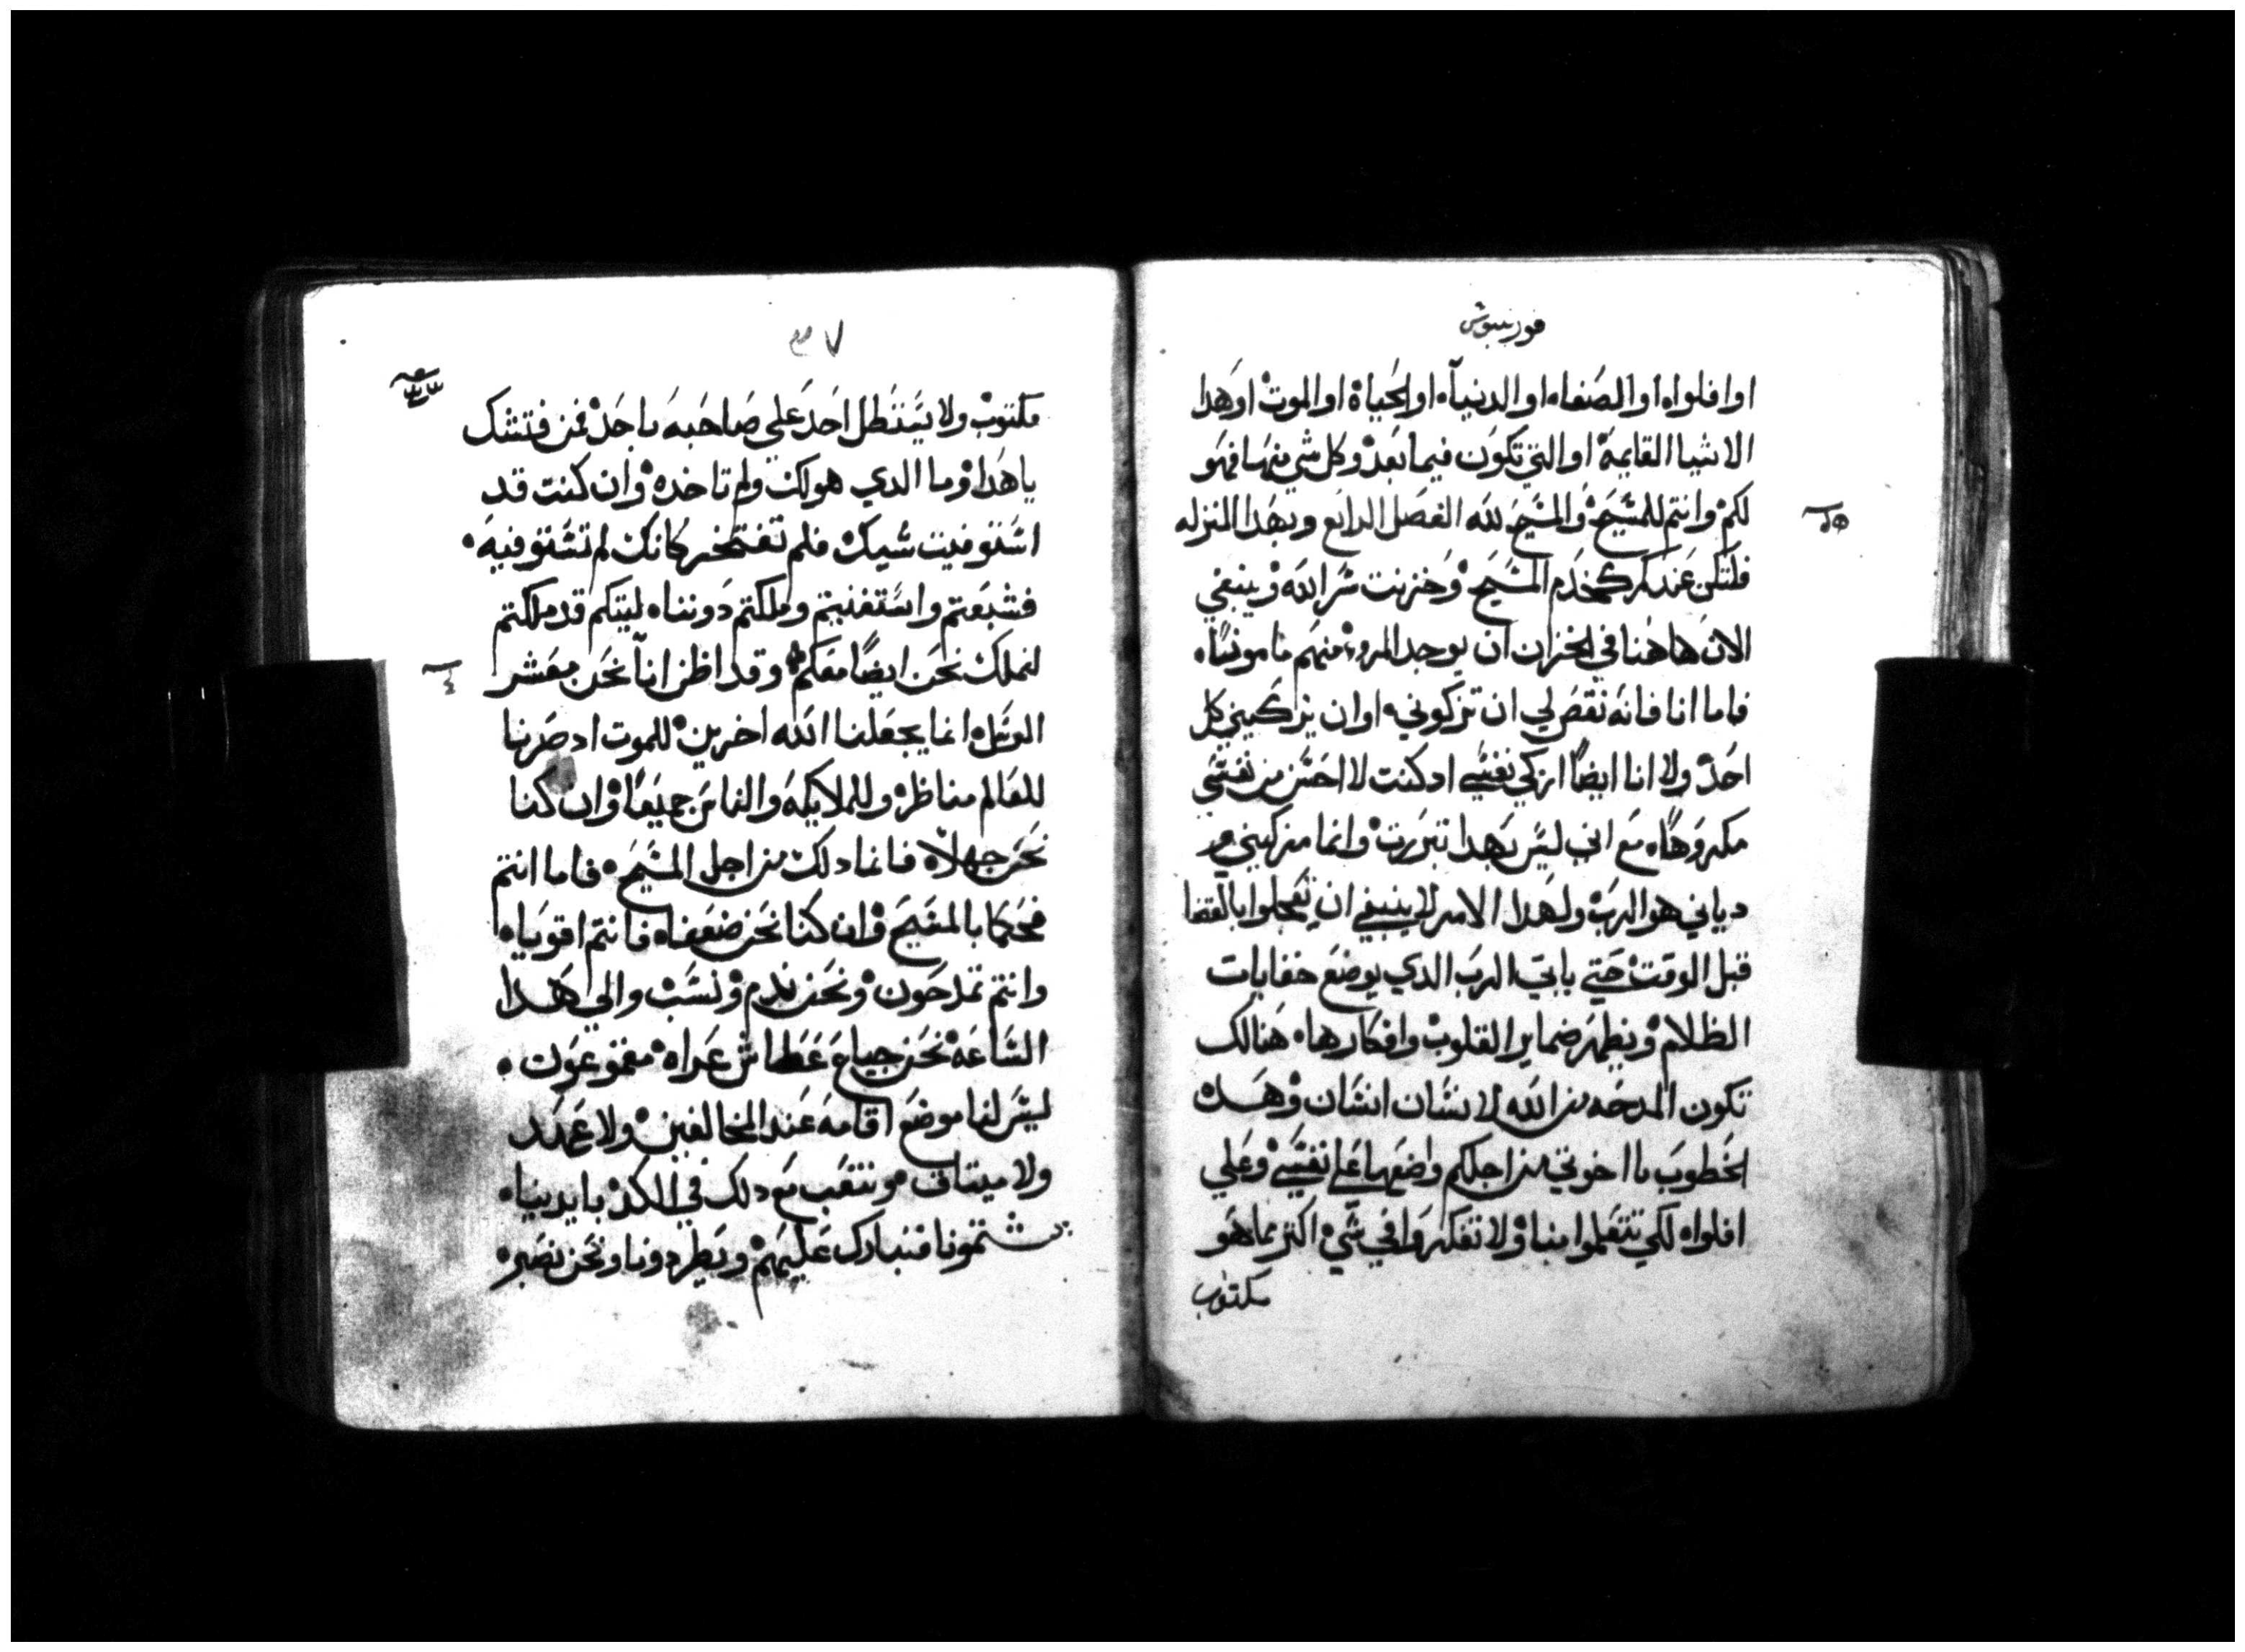 قورنتيوش
اوافلواه او الصفاه او الدنياه او الحياة او الموت او هدا
الاشيا القايمة او التي تكون فيما بعد وكل شي منها فهو
لكم وانتم للمسيح والمسيح لله الفصل الرابع وبهدا المنزله
فلتكن عندكم كخدم المسيح وخزنت سر الله وينبغي
الان هاهنا في الخزان ان يوجد المروء منهم مامونا
فاما انا فانه نقص لي ان تزكوني او ان يزكيني كل
احد ولا انا ايضا ازكي نفسي اد كنت لا احسن من نفسي
مكروها مع اني ليس بهدا تبررت وانما مزكيني و
دياني هو الرب ولهدا الامر لا ينبغي ان تعجلوا بالقضا
قبل الوقت حتي ياتي الرب الدي يوضع خفايات
الظلام ويظهر ضماير القلوب وافكارها هنالك
تكون المدحه من الله لانسان انسان وهده
الخطوب يا اخوتي من اجلكم واضعها علي نفسي وعلي
افلواه لكي تتعلموا منا ولا تفكروا في شي اكتر مما هو
مكتوب
٣٧
مكتوب ولا يتنطل احد علي صاحبه باحد فمن فتشك
يا هدا وما الدي هو لك ولم تاخده وان كنت قد
استوفيت شيك فلم تفتخر كانك لم تستوفيه
فشبعتم واستغنيتم وملكتم دونناه ليتكم قد ملكتم
لنملك نحن ايضا معكم وقد اظن انا نحن معشر
الرسل انما يجعلنا الله اخرين للموت اد صرنا
للعالم مناظره وللملايكه والناس جميعا وان كنا
نحن جهلاه فانما دلك من اجل المسيح فاما انتم
فحكما بالمسيح وان كنا نحن ضعفاه فانتم اقوياه
وانتم تمدحون ونحن ندم ونسب والي هدا
الساعه نحن جياع عطاش عراه مقموعون
ليس لنا موضع اقامه عند المخالفين ولا عهد
ولا ميتاق ونتعب مع دلك في الكد بايديناه
يشتمونا فنبارك عليهم ويطردونا ونحن نصبر